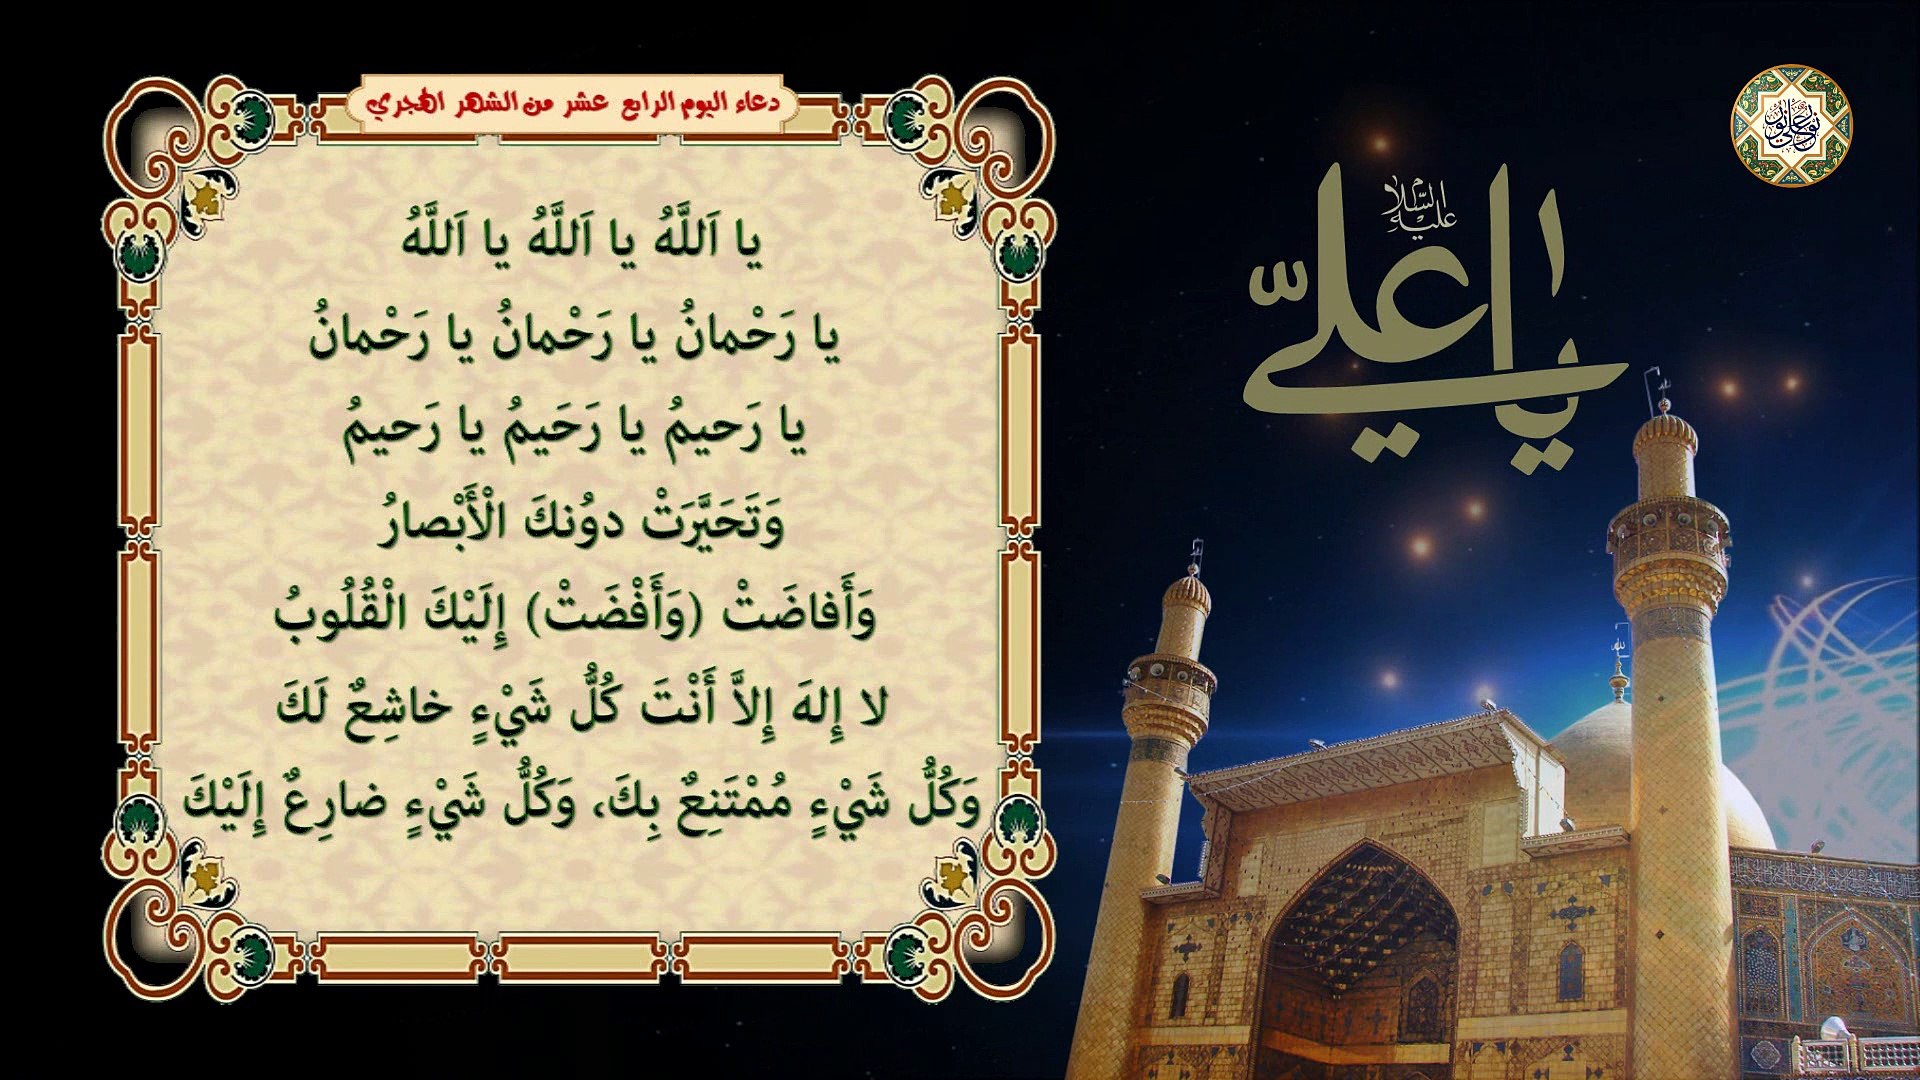 دعاء اليوم الرابع عشر من الشهر الهجري
يا اَللَّهُ يا اَللَّهُ يا اَللَّهُ
يا رَحْمانُ يا رَحْمانُ يا رَحْمانُ
يا رَحيمُ يا رَحَيمُ يا رَحيمُ
وَتَحَيَّرَتْ دوُنكَ الْأَبْصارُ
وَأَفاضَتْ (وَأَفْضَتْ) إِلَيْكَ الْقُلُوبُ
لا إِلهَ إِلاَّ أَنْتَ كُلُّ شَيْءٍ خاشِعٌ لَكَ
وَكُلُّ شَيْءٍ مُمْتَنِعٌ بِكَ، وَكُلُّ شَيْءٍ ضارِعٌ إِلَيْكَ
يا عليّ
عليه السّلام
نور على نور